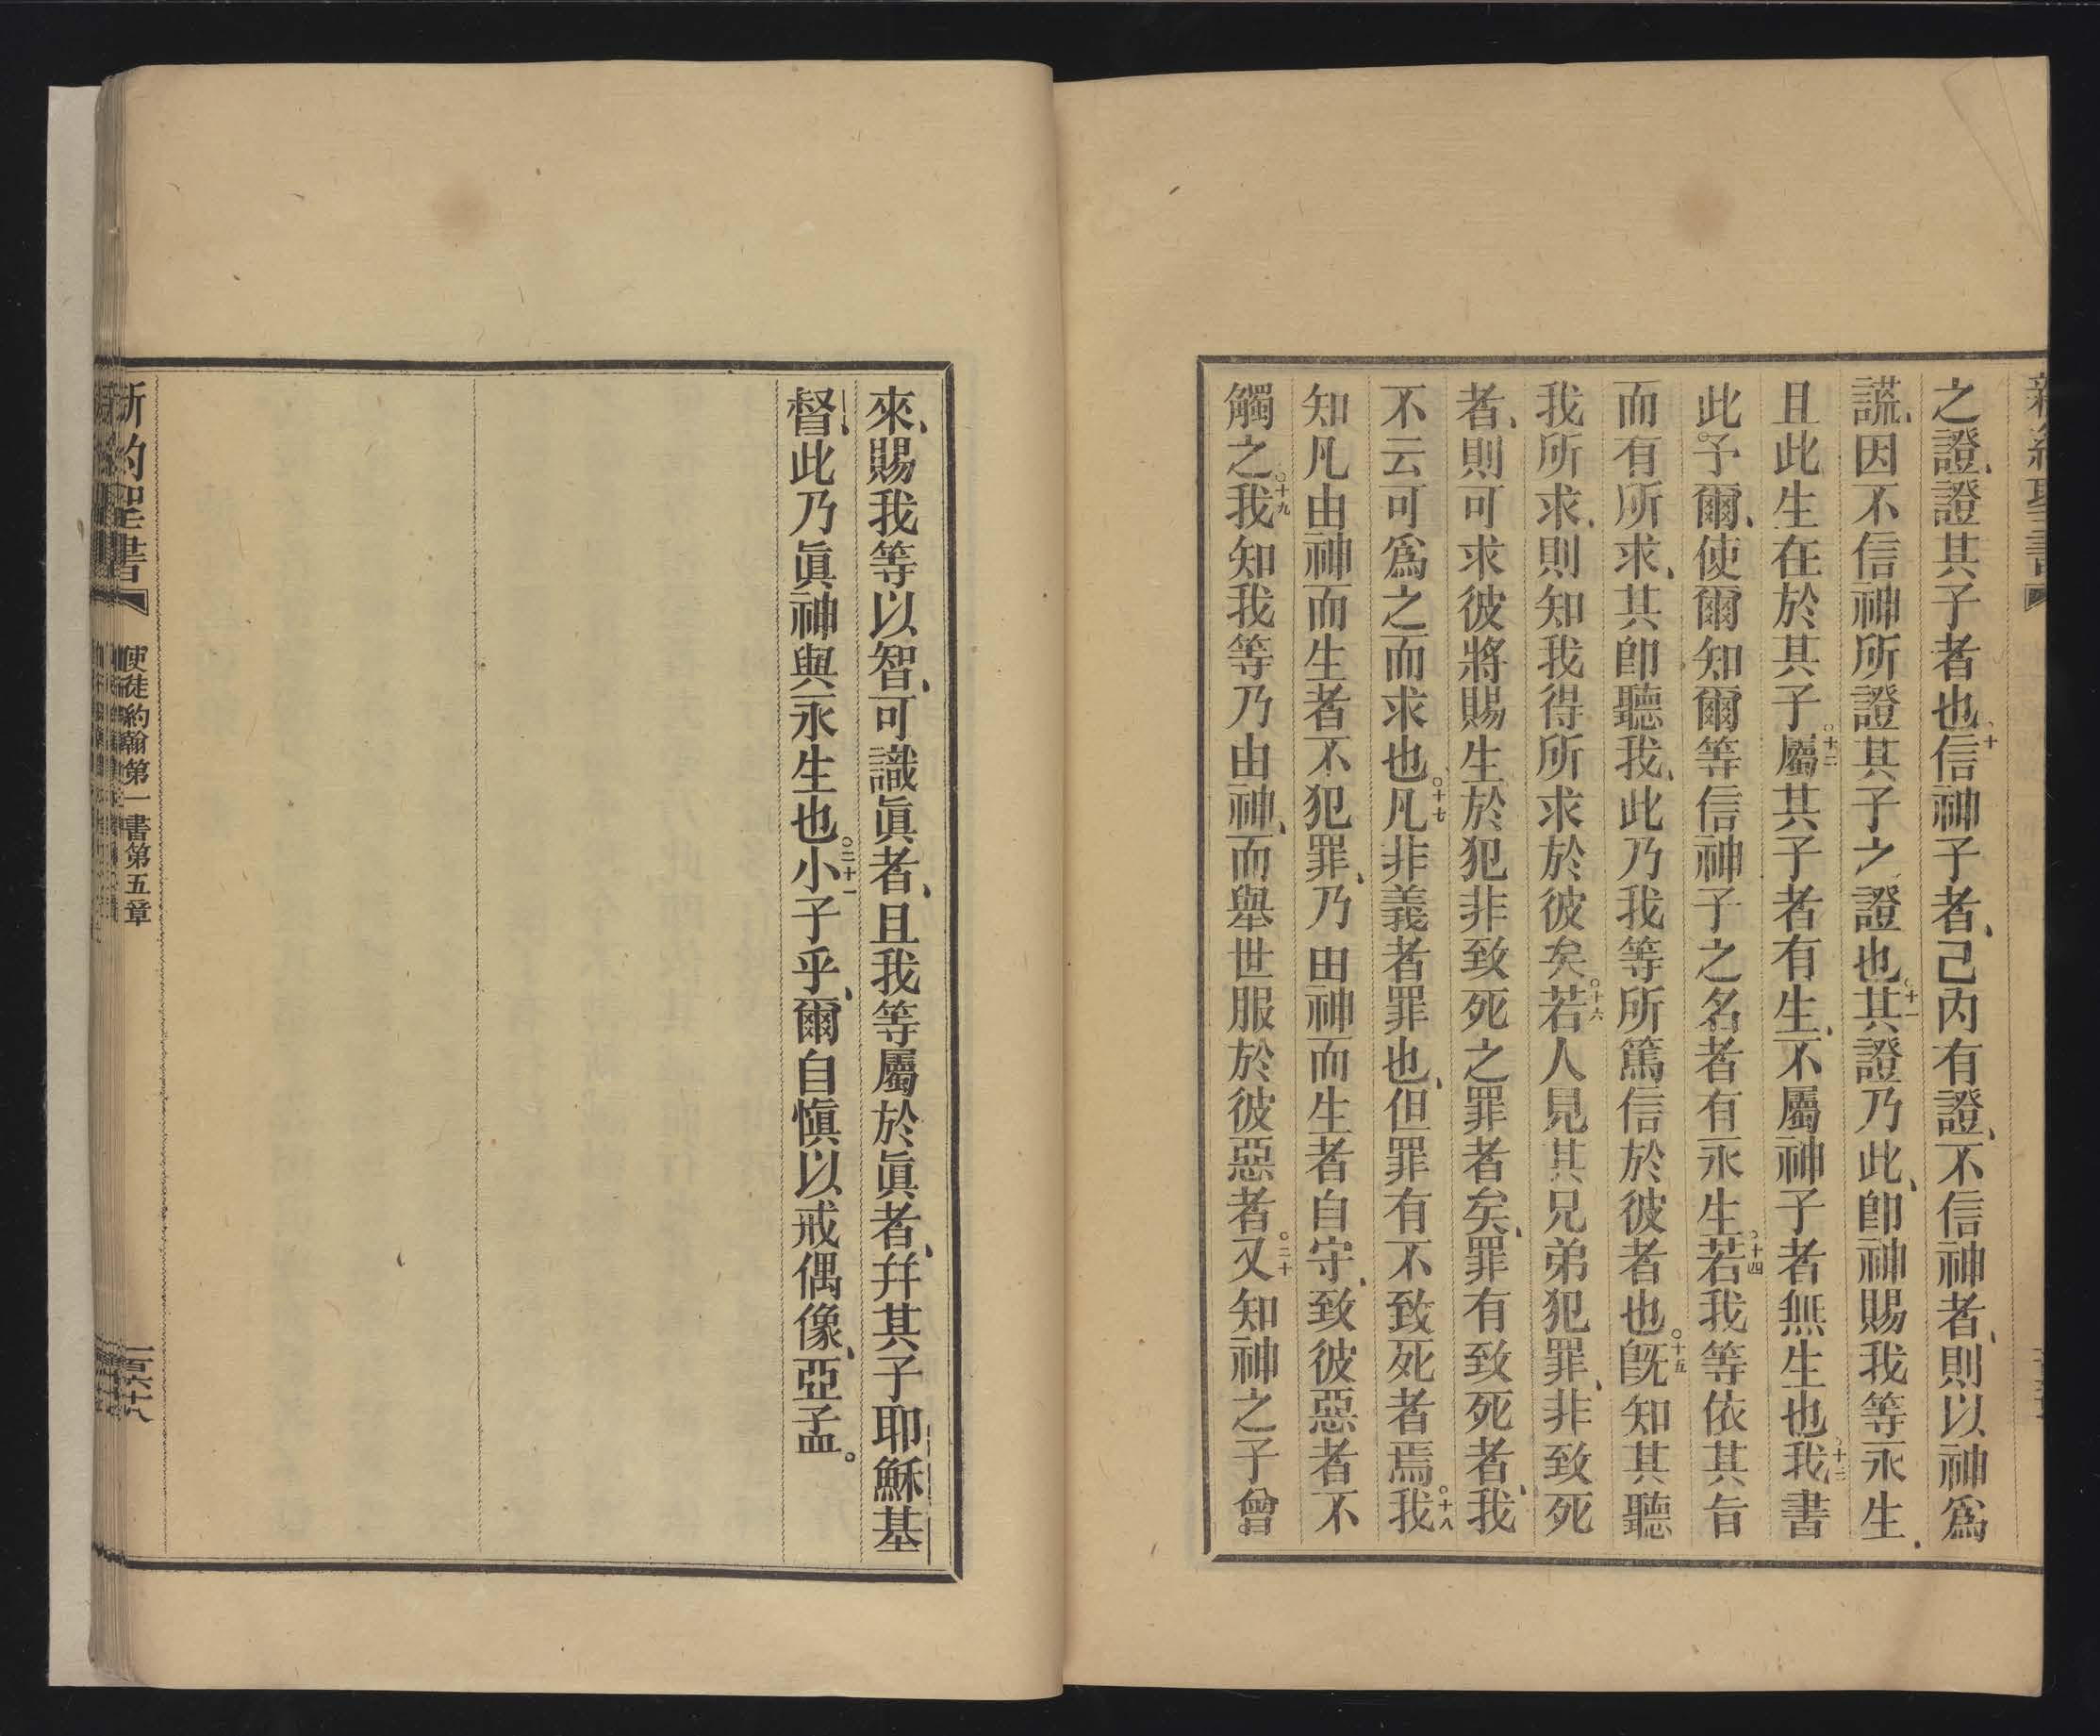 之證、證其子者也、十信神子者、己內有證、不信神者、則以神爲
謊、因不信神所證其子之證也、十一其證乃此、卽神賜我等永生、
且此生在於其子。十二屬其子者有生、不屬神子者無生也、十三我書
此予爾、使爾知爾等信神子之名者有永生。十四若我等依其旨
而有所求、其卽聽我、此乃我等所篤信於彼者也。十五旣知其聽
我所求、則知我得所求於彼矣。十六若人見其兄弟犯罪、非致死
者、則可求彼將賜生於犯非致死之罪者矣、罪有致死者、我
不云可爲之而求也。十七凡非義者罪也、但罪有不致死者焉。十八我
知凡由神而生者不犯罪、乃由神而生者自守、致彼惡者不
觸之。十九我知我等乃由神、而舉世服於彼惡者。二十又知神之子曾
來、賜我等以智、可識眞者、且我等屬於眞者、幷其子耶穌基
督、此乃眞神與永生也。二十一小子乎、爾自愼以戒偶像、亞孟。
新約聖書 使徒約翰第一書第五章 一百六十八